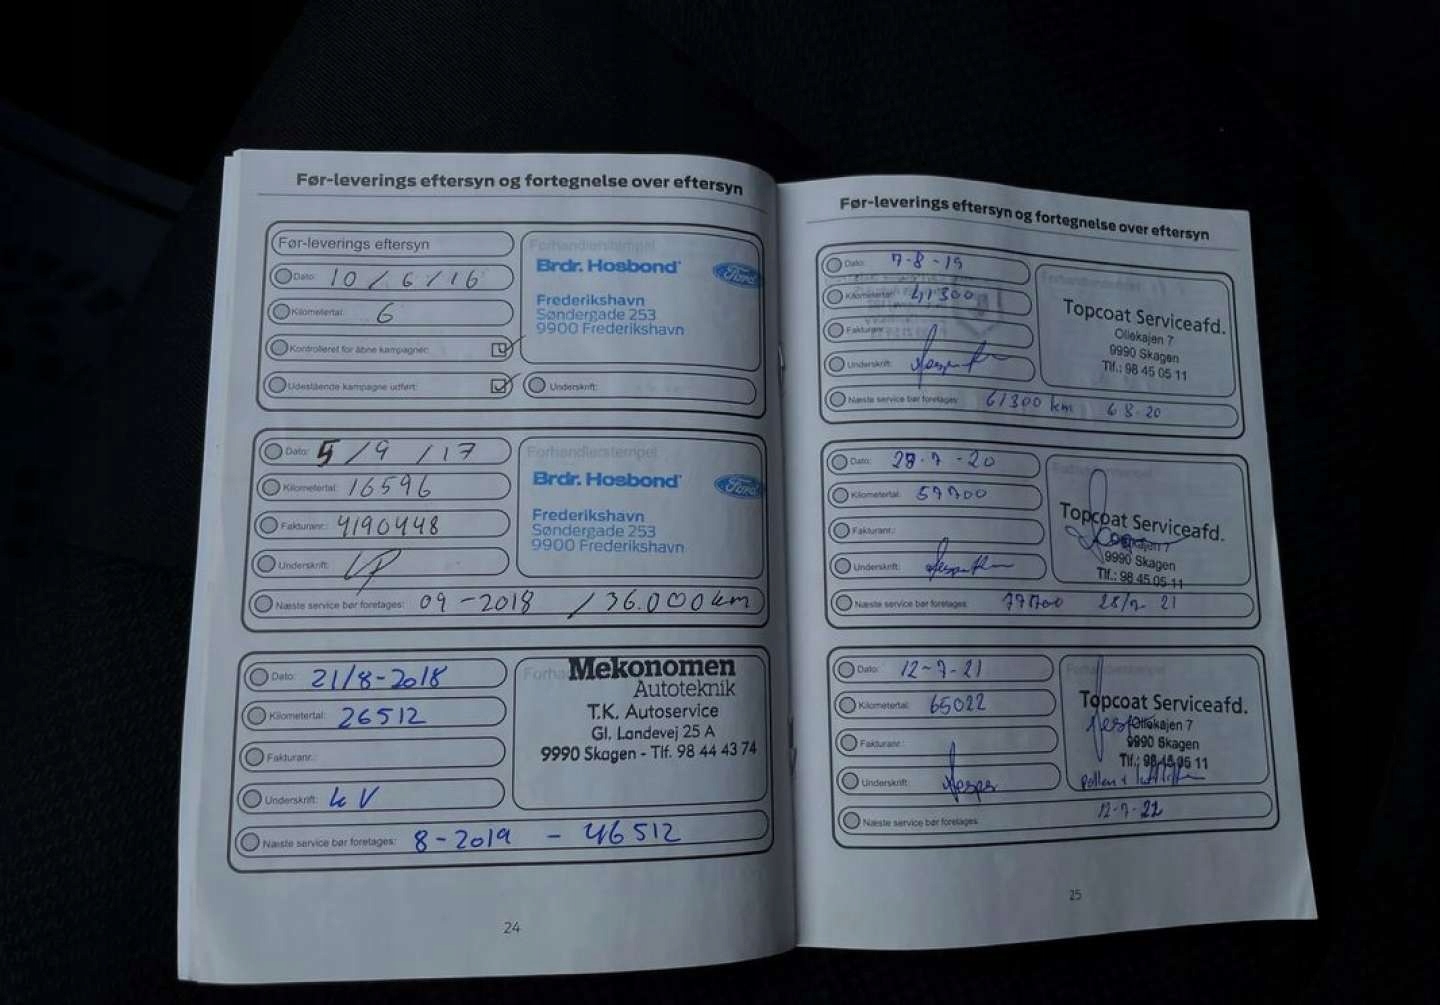 Før-leverings eftersyn og fortegnelse over eftersyn
Før-leverings eftersyn
Forhandlerstempel
Dato: 10 / 6 / 16
Brdr. Hosbond
Ford
Kilometertal: 6
Frederikshavn
Søndergade 253
9900 Frederikshavn
Kontrolleret for åbne kampagner:
Udestående kampagne udført:
Underskrift:
Dato: 5 / 9 / 17
Forhandlerstempel
Kilometertal: 16596
Brdr. Hosbond
Ford
Fakturanr.: 4190448
Frederikshavn
Søndergade 253
9900 Frederikshavn
Underskrift:
Næste service bør foretages: 09-2018 / 36.000 km
Dato: 21/8-2018
Mekonomen
Autoteknik
Kilometertal: 26512
T.K. Autoservice
Gl. Landevej 25 A
9990 Skagen - Tlf. 98 44 43 74
Fakturanr.:
Underskrift: kV
Næste service bør foretages: 8-2019 - 46512
24
Før-leverings eftersyn og fortegnelse over eftersyn
Dato: 7-8-19
Kilometertal: 41300
Topcoat Serviceafd.
Ollekajen 7
9990 Skagen
Tlf.: 98 45 05 11
Fakturanr.:
Underskrift:
Næste service bør foretages: 61300 km 6 8-20
Dato: 28-7-20
Kilometertal: 57700
Topcoat Serviceafd.
Ollekajen 7
9990 Skagen
Tlf.: 98 45 05 11
Fakturanr.:
Underskrift:
Næste service bør foretages: 77700 28/7 21
Dato: 12-7-21
Kilometertal: 65022
Topcoat Serviceafd.
Ollekajen 7
9990 Skagen
Tlf.: 98 45 05 11
Fakturanr.:
Underskrift:
Næste service bør foretages: 12-7-22
25